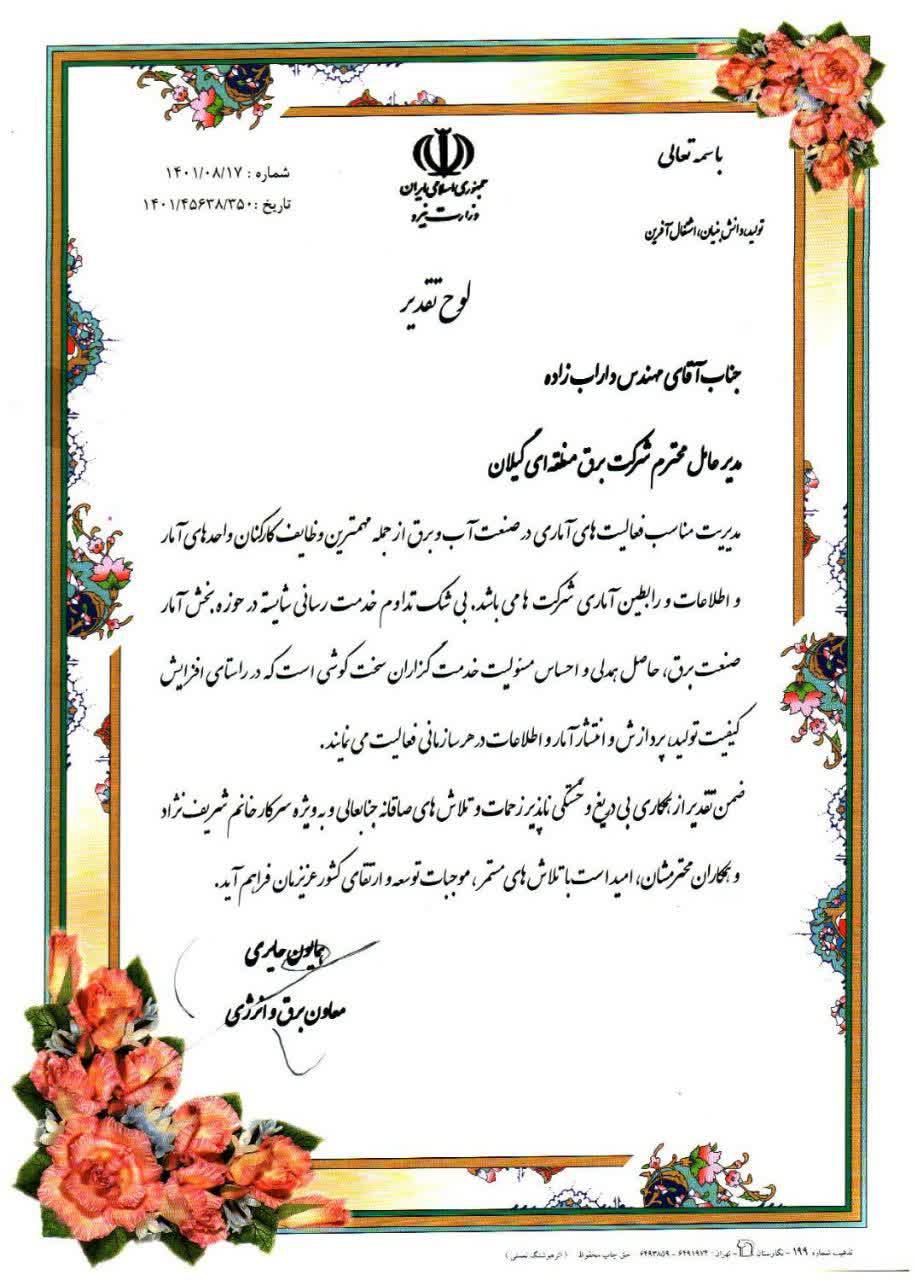 باسمه تعالی
تولید، دانش بنیان، اشتغال آفرین
جمهوری اسلامی ایران
وزارت نیرو
شماره : ۱۴۰۱/۰۸/۱۷
تاریخ : ۱۴۰۱/۴۵۶۳۸/۳۵۰
لوح تقدیر
جناب آقای مهندس داراب زاده
مدیر عامل محترم شرکت برق منطقه ای گیلان
مدیریت مناسب فعالیت های آماری در صنعت آب و برق از جمله مهمترین وظایف کارکنان واحدهای آمار
و اطلاعات و رابطین آماری شرکت ها می باشد. بی شک تداوم خدمت رسانی شایسته در حوزه بخش آمار
صنعت برق، حاصل همدلی و احساس مسئولیت خدمت گزاران سخت کوشی است که در راستای افزایش
کیفیت تولید، پردازش و انتشار آمار و اطلاعات در هر سازمانی فعالیت می نمایند.
ضمن تقدیر از همکاری بی دریغ و خستگی ناپذیر زحمات و تلاش های صاقانه جنابعالی و به ویژه سرکار خانم شریف نژاد
و همکاران محترمشان، امید است با تلاش های مستمر، موجبات توسعه و ارتقای کشور عزیزمان فراهم آید.
همایون حایری
معاون برق و انرژی
تذهیب شماره ۱۹۹ - نگارستان - تهران: ۶۴۹۱۹۷۴ - ۶۴۹۳۸۵۹ حق چاپ محفوظ